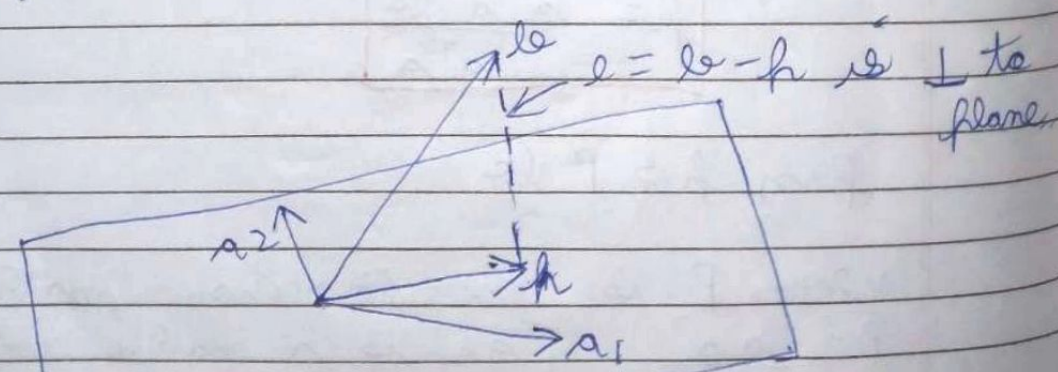 b
e = b - p is ⊥ to
plane
a2
p
a1